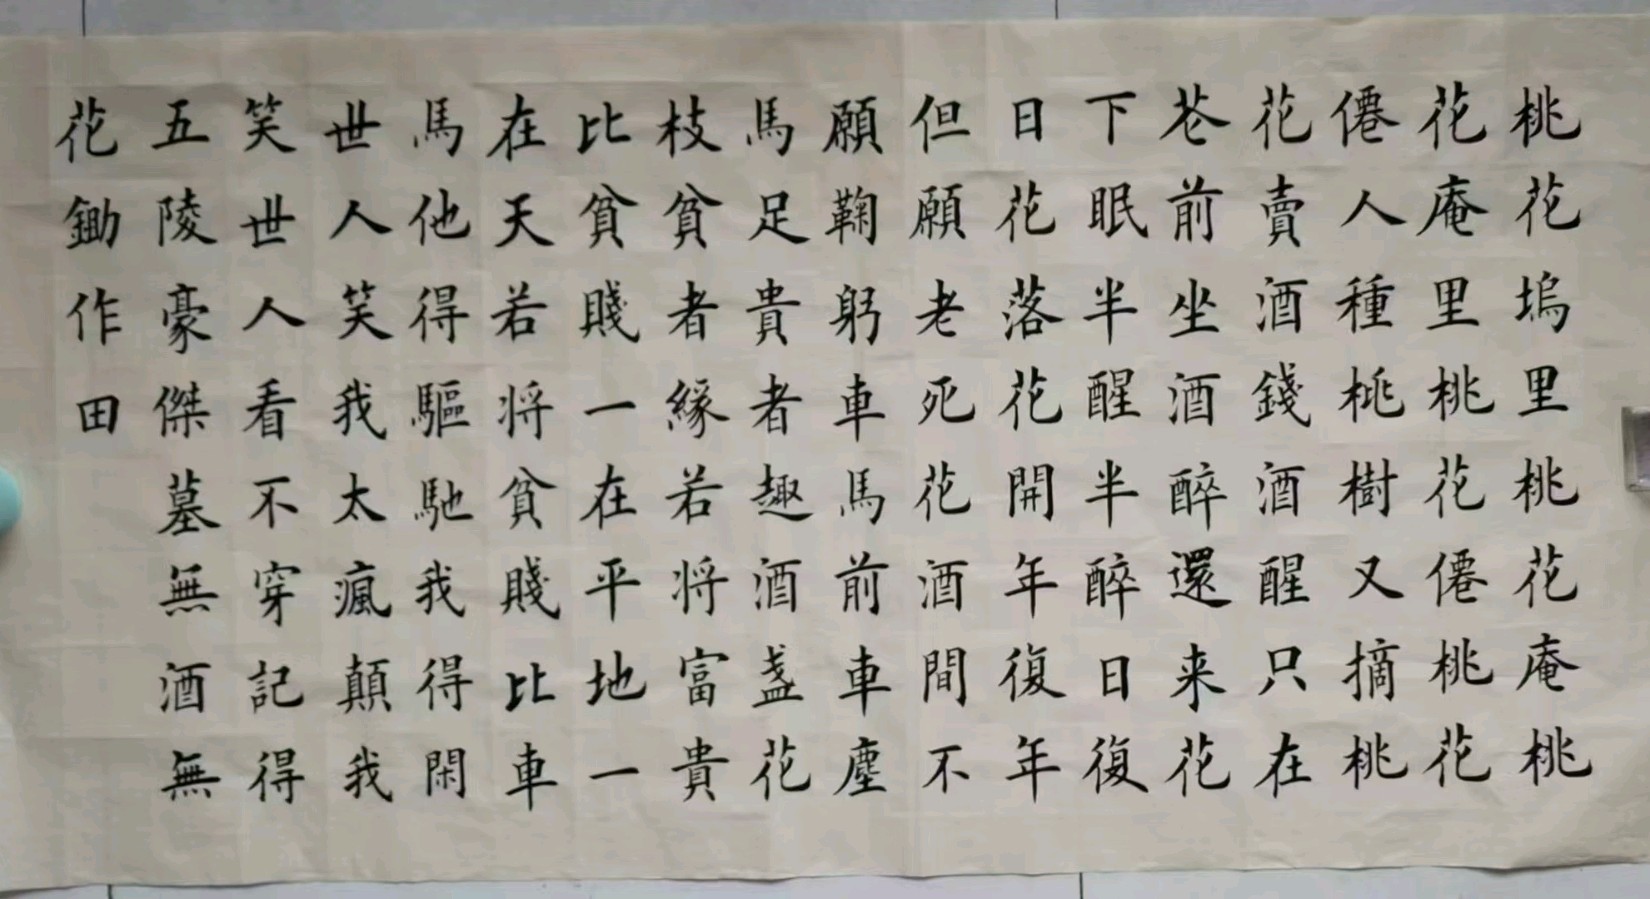 桃花塢里桃花庵桃
花庵里桃花僊桃花
僊人種桃樹又摘桃
花賣酒錢酒醒只在
花前坐酒醉還来花
下眠半醒半醉日復
日花落花開年復年
但願老死花酒間不
願鞠躬車馬前車塵
馬足貴者趣酒盞花
枝貧者緣若将富貴
比貧賤一在平地一
在天若将貧賤比車
馬他得驅馳我得閑
世人笑我太瘋顛我
笑世人看不穿記得
五陵豪傑墓無酒無
花鋤作田